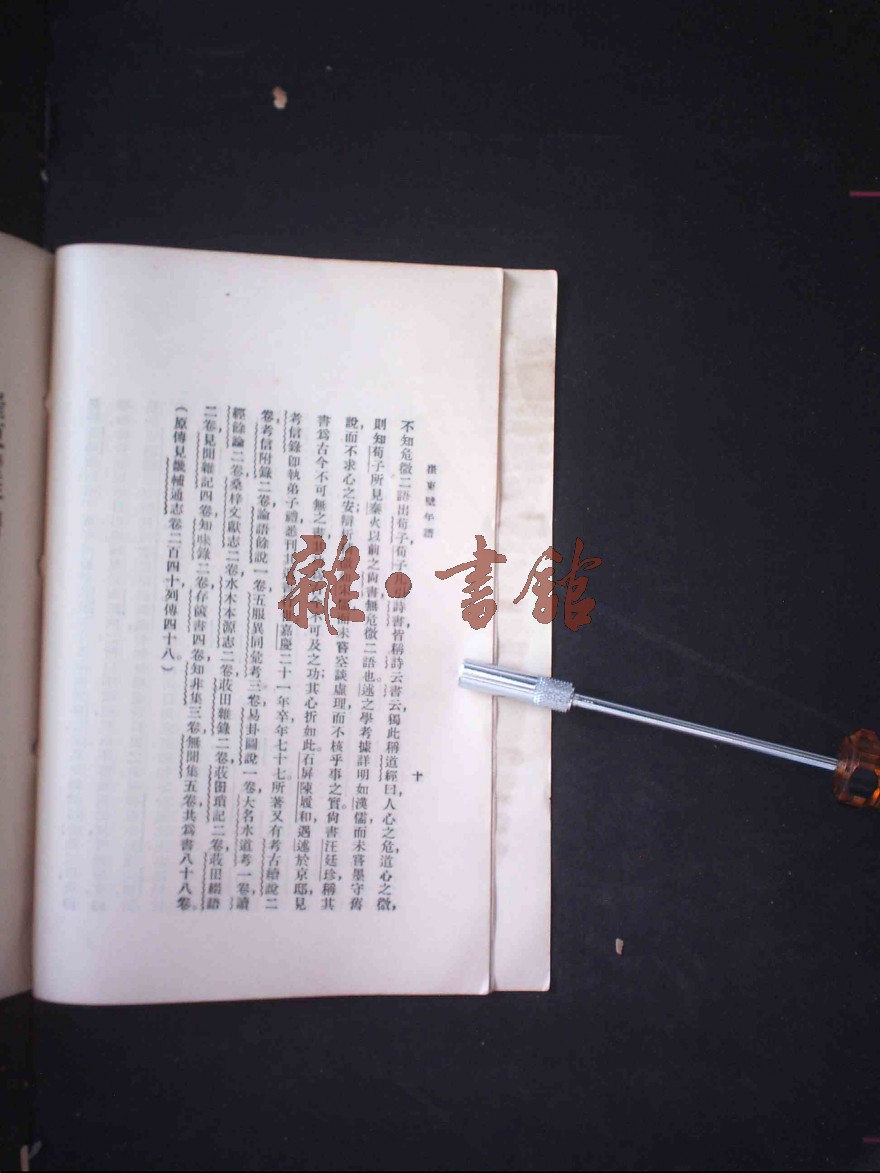 崔東壁年譜
十
不知危微二語出荀子荀子凡引詩書皆稱詩云書云獨此稱道經曰，人心之危，道心之微，
則知荀子所見秦火以前之尚書無危微二語也。述之學考據詳明如漢儒而未嘗墨守舊
說而不求心之安；辯析而未嘗空談虛理而不核乎事之實。尚書汪廷珍稱其
書爲古今不可無之書其不可及之功；其心折如此。石屏陳履和遇述於京邸，見
考信錄即執弟子禮嘉慶二十一年卒年七十七。所著又有考古續說二
卷，考信附錄二卷，論語餘說一卷，五服異同彙考三卷，易卦圖說一卷，大名水道考一卷，讀
經餘論二卷，桑梓文獻志二卷，水木本源志二卷，莜田雜錄二卷，莜田瑣記二卷，莜田綴語
二卷，見聞雜記四卷，知味錄二卷，存篋書四卷，知非集三卷，無聞集五卷，共爲書八十八卷。
（原傳見畿輔通志卷二百四十列傳四十八。）
雜·書館